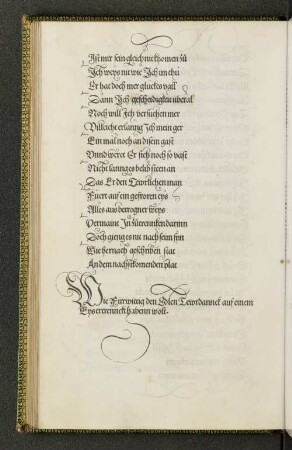 Ist mir sein gleich nie khomen zů
Ich weys nit wie Ich im thů
Er hat doch mer glucks vyll
Dann Ich gescheidigkeit uberal
Noch will Ich versuechen mer
Villeicht erlanng Ich mein ger
Ein mal noch an disem gast
Vnnd weret Er sich noch so vast
Nicht lanng es beleib steen an
Das Er den Tewrlichen man
Fuert auf ein gefroren eys
Alles aus betrogner weys
Vermaint In zůertrencken darynn
Doch gieng es nit nach seim syn
Wie hernach geschriben stat
An dem nachstkomenden plat
Wie Fürwittig den Edlen Tewrdannck auf einem
Eys ertrennckt haben wolt.